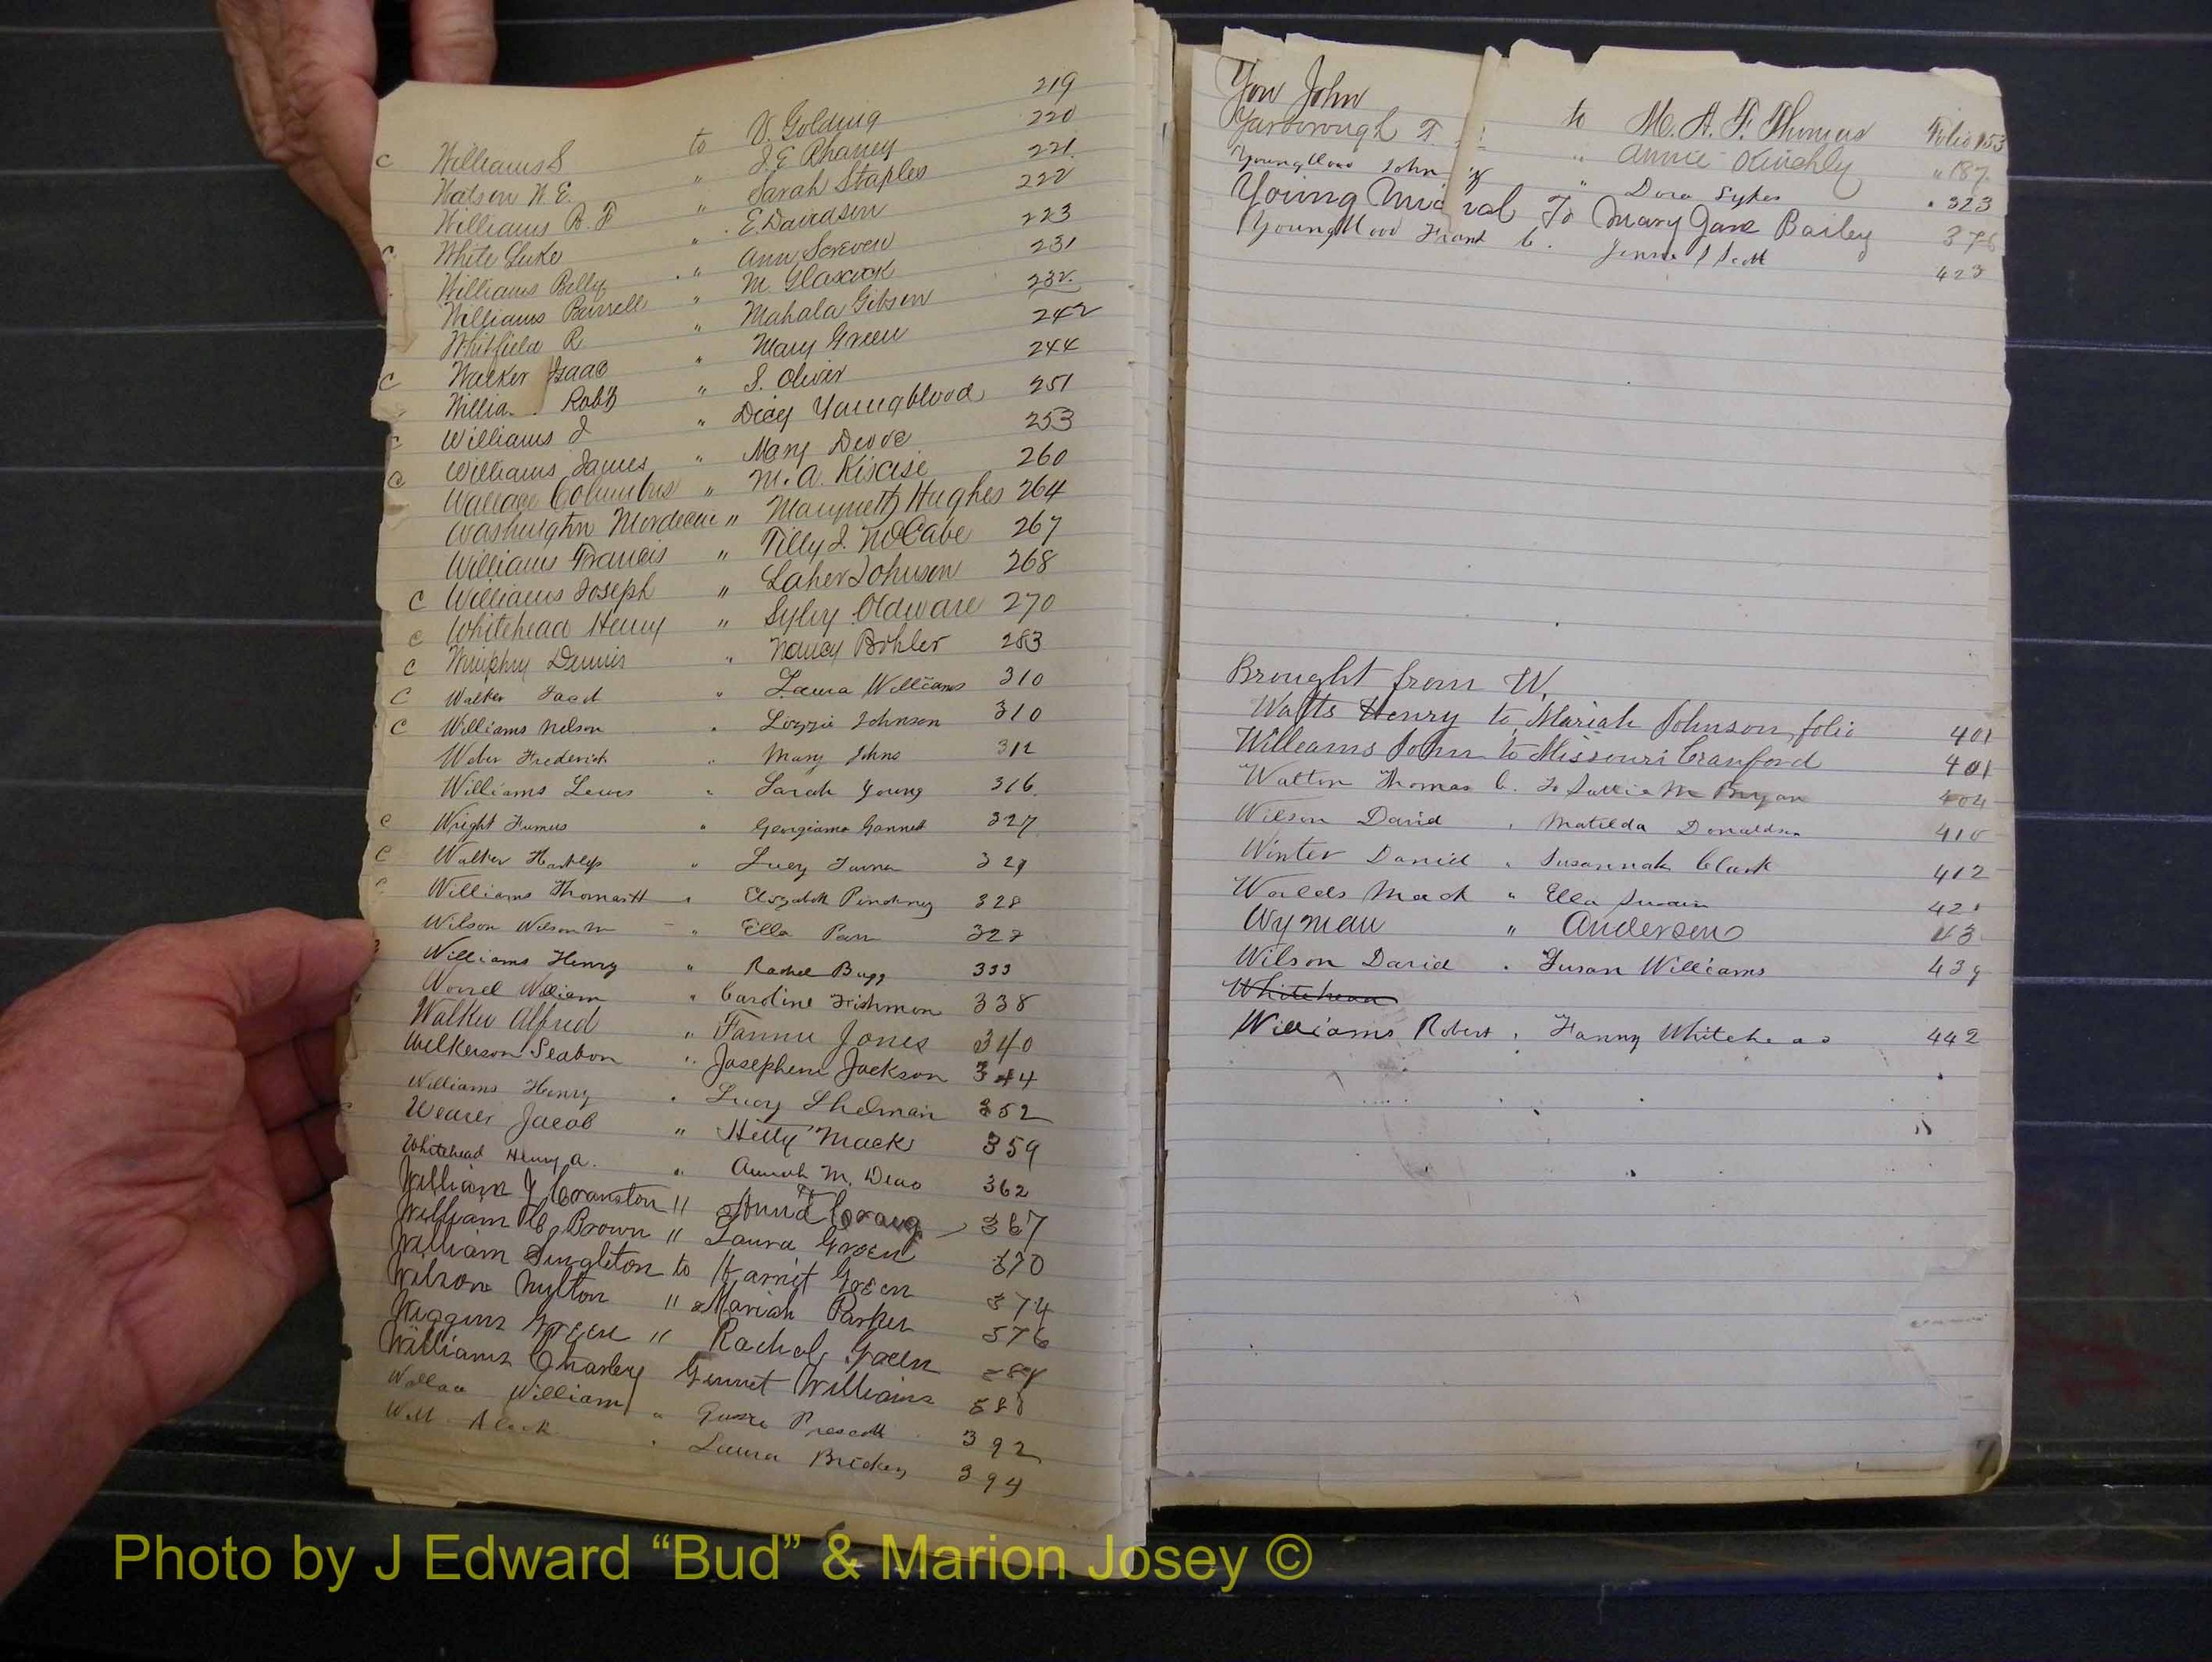 219
C Williams S to V. Golding 220
Watson W. E. " J. E. Rhaney 221
Williams B. F " Sarah Staples 222
C White Luke " E. Davidson 223
Williams Billy " Ann Screven 231
Williams Burrell " M. Glascock 232
Whitfield R " Mahala Gibson 242
C Walker Isaac " Mary Green 244
Willia Robt " S. Oliver 251
C Williams J " Dicey Youngblood 253
C Williams James " Mary Deove 260
Wallace Columbus " M. A. 264
Washington Mordecai " Hughes 267
Williams Francis " Tilly J. McCabe 268
C Williams Joseph " Laher Johnson 270
C Whitehead Henry " Sylvy Oldware 283
C Wimphry Dennis " Nancy Bohler 310
C Walker " Laura Williams 310
C Williams Nelson " Lizzie Johnson 312
Weber Frederick " Mary Johns 316
Williams Lewis " Sarah Young
C Wright " Georgiana 327
C Walker " Lucy
C Williams " Elizabeth Pinckney 328
Wilson Wilson W " Ella Parr
Williams Henry " Rachel Bugg 333
William " Caroline Fishman 338
Walker Alfred " Fannie Jones 340
Wilkerson Seabon " Josephene Jackson 344
Williams Henry " Lucy Shelman 352
Weaver Jacob " Hetty Mack 359
Whitehead Henry A. " M. Deas 362
William J Cranston " Anna Craig 367
William H. Brown " Laura Green 370
William Singleton to Harriet Green 374
Wilson Mylton " Mariah Parker 376
Wiggins Green " Rachel Green
Williams Charley Williams
Wallace William " Prescott 392
Will Aleck " Laura Brickey 394
You John to M. A. F. Thomas Folio 153
Yarborough T. " Annie " 187
Youngblood John " Dora Sykes " 323
Young val To Mary Jane Bailey 376
Youngblood Frank C. Jennie Scott 423
Brought from W.
Watts Henry to Mariah Johnson folio 401
Williams John to Missouri Cranford 401
Walton Thomas C. To Sallie M Bryan 404
Wilson David " Matilda Donaldson 410
Winter Daniel " Susannah Clark 412
Mack " Ella Swain 421
Wyman " Anderson 43
Wilson David " Susan Williams 439
Whitehead
Williams Robert " Fanny Whitehead 442
Photo by J Edward “Bud” & Marion Josey ©